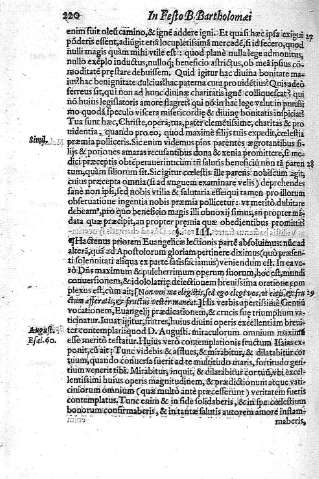 220 In Festo B. Bartholomæi
enim fuit oleũ camino, & ignẽ addere igni. Et quasi hæc ipsa exigui 27
põderis essent, adiũgit
nulli magis quàm mihi visæ est: quòd planè nulla lege admonitus,
nullo exẽplo inductus, nulloq; beneficio astrictus, ob meã ipsus cõ-
moditatẽ præstare debuissem. Quid igitur hac diuina bonitate ma-
ius? hac benignitate dulcius? hac paterna cura prouidẽtius? Quis adeò
ferreus sit, qui nõ ad hunc diuinæ charitatis ignẽ colliquescat? qui
nõ huius legislatoris amore flagret? qui nõ in hac lege velut in purissi-
mo quodã speculo viscera misericordiæ & diuinæ bonitatis inspiciat?
Tua hæc sunt, Christe, opera, tua, pater clementissime, charitas & pro
uidentia, quando pro eo, quod maximè filijs tuis expedit, cœlestia
Simil. præmia polliceris. Sic enim videmus pios parentes ægrotantibus fi-
lijs & potiones amaras recusantibus dona & xenia promittere, si me-
dici præceptis obtẽperauerint: cùm tñ salutis beneficiũ nõ tã paren 28
tum, quàm filiorum sit. Sic igitur cœlestis ille parens nobiscum agit,
cuius præcepta omnia (si ad vnguem examinare velis) deprehendes
sanè non ipsi, sed nobis vtilia & salutaria esse: qui tamen pro illorum
obseruatione ingentia nobis præmia pollicetur: vt meritò dubitare
debeam, pro quo beneficio magis illi obnoxij simus, an propter mã-
data quæ præcipit, an propter præmia quæ obedientibus promittit.
§. III.
¶ Hactenus priorem Euangelicæ lectionis partẽ absoluimus: nũc ad
alterã, quæ ad Apostolorum gloriam pertinere diximus (quò præsen-
ti solennitati aliqua ex parte satisfaciamus) veniendum est. In ea ve-
rò Dñs maximum & pulcherrimum operum suorum, hoc est, mundi
conuersionem, & idololatriæ deiectionem breuissima oratione com
plexus est, cùm ait: (Non vos me elegistis, sed ego elegi vos, vt eatis, & fru 29
ctum afferatis, & fructus vester maneat.) His verbis apertissimè Gentiũ
vocationem, Euangelij prædicationem, & crucis suæ triumphum va-
ticinatur. Iuuat igitur, fratres, huius diuini operis excellentiam breui-
August. ter contemplari: quod D. Augustinus miraculorum omnium maximũ
esse meritò testatur. Huius verò contemplationis fructum Isaias ex-
Esai. 60. ponit, cùm ait: Tunc videbis & afflues, & mirabitur, & dilatabitur cor
tuum, quando conuersa fuerit ad te multitudo maris, fortitudo gen-
tium venerit tibi. Mirabitur, inquit, & dilatabitur cor tuũ, vbi excel-
lentissimi huius operis magnitudinem, & prædictionum atque vati-
ciniorum omnium (quæ multò antè præcesserunt) veritatem fueris
contemplatus. Tunc enim & in fide solidaberis, & in spe cœlestium
bonorum confirmaberis, & in tantæ salutis autorem amore inflam-
maberis,